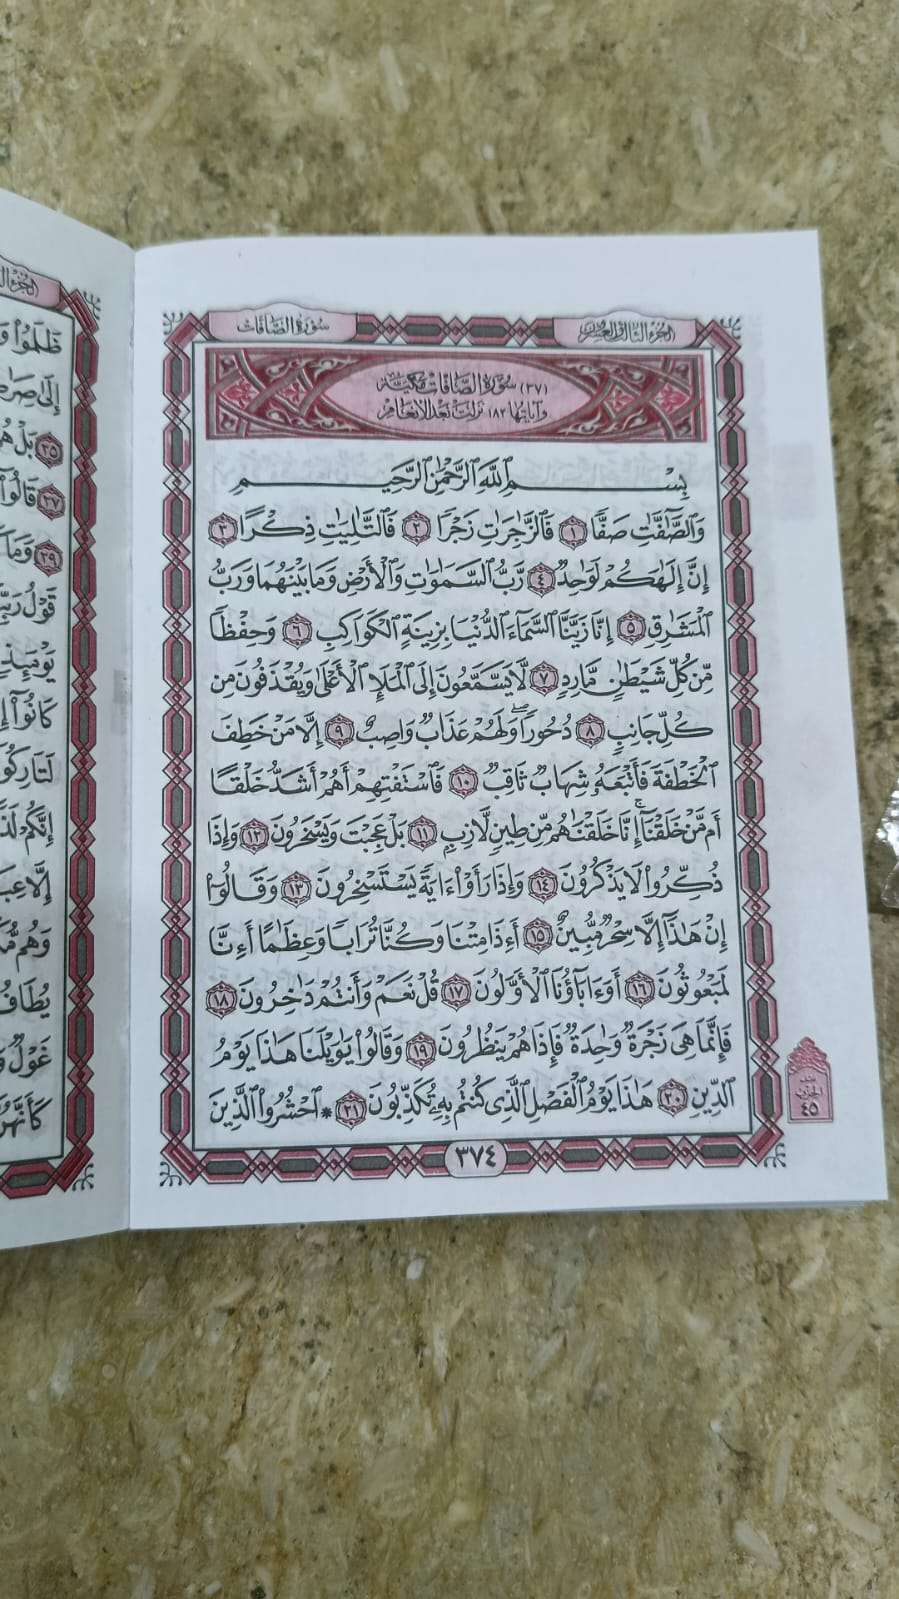 الجزء الثالث والعشرون
سورة الصافات
(٣٧) سورة الصافات مكية
وآياتها ١٨٢ نزلت بعد الأنعام
بِسْمِ ٱللَّهِ ٱلرَّحْمَٰنِ ٱلرَّحِيمِ
وَٱلصَّٰٓفَّٰتِ صَفًّا ١ فَٱلزَّٰجِرَٰتِ زَجْرًا ٢ فَٱلتَّٰلِيَٰتِ ذِكْرًا ٣
إِنَّ إِلَٰهَكُمْ لَوَٰحِدٌ ٤ رَّبُّ ٱلسَّمَٰوَٰتِ وَٱلْأَرْضِ وَمَا بَيْنَهُمَا وَرَبُّ
ٱلْمَشَٰرِقِ ٥ إِنَّا زَيَّنَّا ٱلسَّمَآءَ ٱلدُّنْيَا بِزِينَةٍ ٱلْكَوَاكِبِ ٦ وَحِفْظًا
مِّن كُلِّ شَيْطَٰنٍ مَّارِدٍ ٧ لَّا يَسَّمَّعُونَ إِلَى ٱلْمَلَإِ ٱلْأَعْلَىٰ وَيُقْذَفُونَ مِن
كُلِّ جَانِبٍ ٨ دُحُورًا ۖ وَلَهُمْ عَذَابٌ وَاصِبٌ ٩ إِلَّا مَنْ خَطِفَ
ٱلْخَطْفَةَ فَأَتْبَعَهُۥ شِهَابٌ ثَاقِبٌ ١٠ فَٱسْتَفْتِهِمْ أَهُمْ أَشَدُّ خَلْقًا
أَم مَّنْ خَلَقْنَآ ۚ إِنَّا خَلَقْنَٰهُم مِّن طِينٍ لَّازِبٍۭ ١١ بَلْ عَجِبْتَ وَيَسْخَرُونَ ١٢ وَإِذَا
ذُكِّرُوا۟ لَا يَذْكُرُونَ ١٣ وَإِذَا رَأَوْا۟ ءَايَةً يَسْتَسْخِرُونَ ١٤ وَقَالُوٓا۟
إِنْ هَٰذَآ إِلَّا سِحْرٌ مُّبِينٌ ١٥ أَءِذَا مِتْنَا وَكُنَّا تُرَابًا وَعِظَٰمًا أَءِنَّا
لَمَبْعُوثُونَ ١٦ أَوَءَابَآؤُنَا ٱلْأَوَّلُونَ ١٧ قُلْ نَعَمْ وَأَنتُمْ دَٰخِرُونَ ١٨
فَإِنَّمَا هِىَ زَجْرَةٌ وَٰحِدَةٌ فَإِذَا هُمْ يَنظُرُونَ ١٩ وَقَالُوا۟ يَٰوَيْلَنَا هَٰذَا يَوْمُ
ٱلدِّينِ ٢٠ هَٰذَا يَوْمُ ٱلْفَصْلِ ٱلَّذِى كُنتُم بِهِۦ تُكَذِّبُونَ ٢١ * ٱحْشُرُوا۟ ٱلَّذِينَ
٣٧٤
الحزب
٤٥
ظَلَمُوا۟
٢٥ بَلْ
٢٧ قَالُوٓا۟
يَوْمَئِذٍ
كَانُوٓا۟